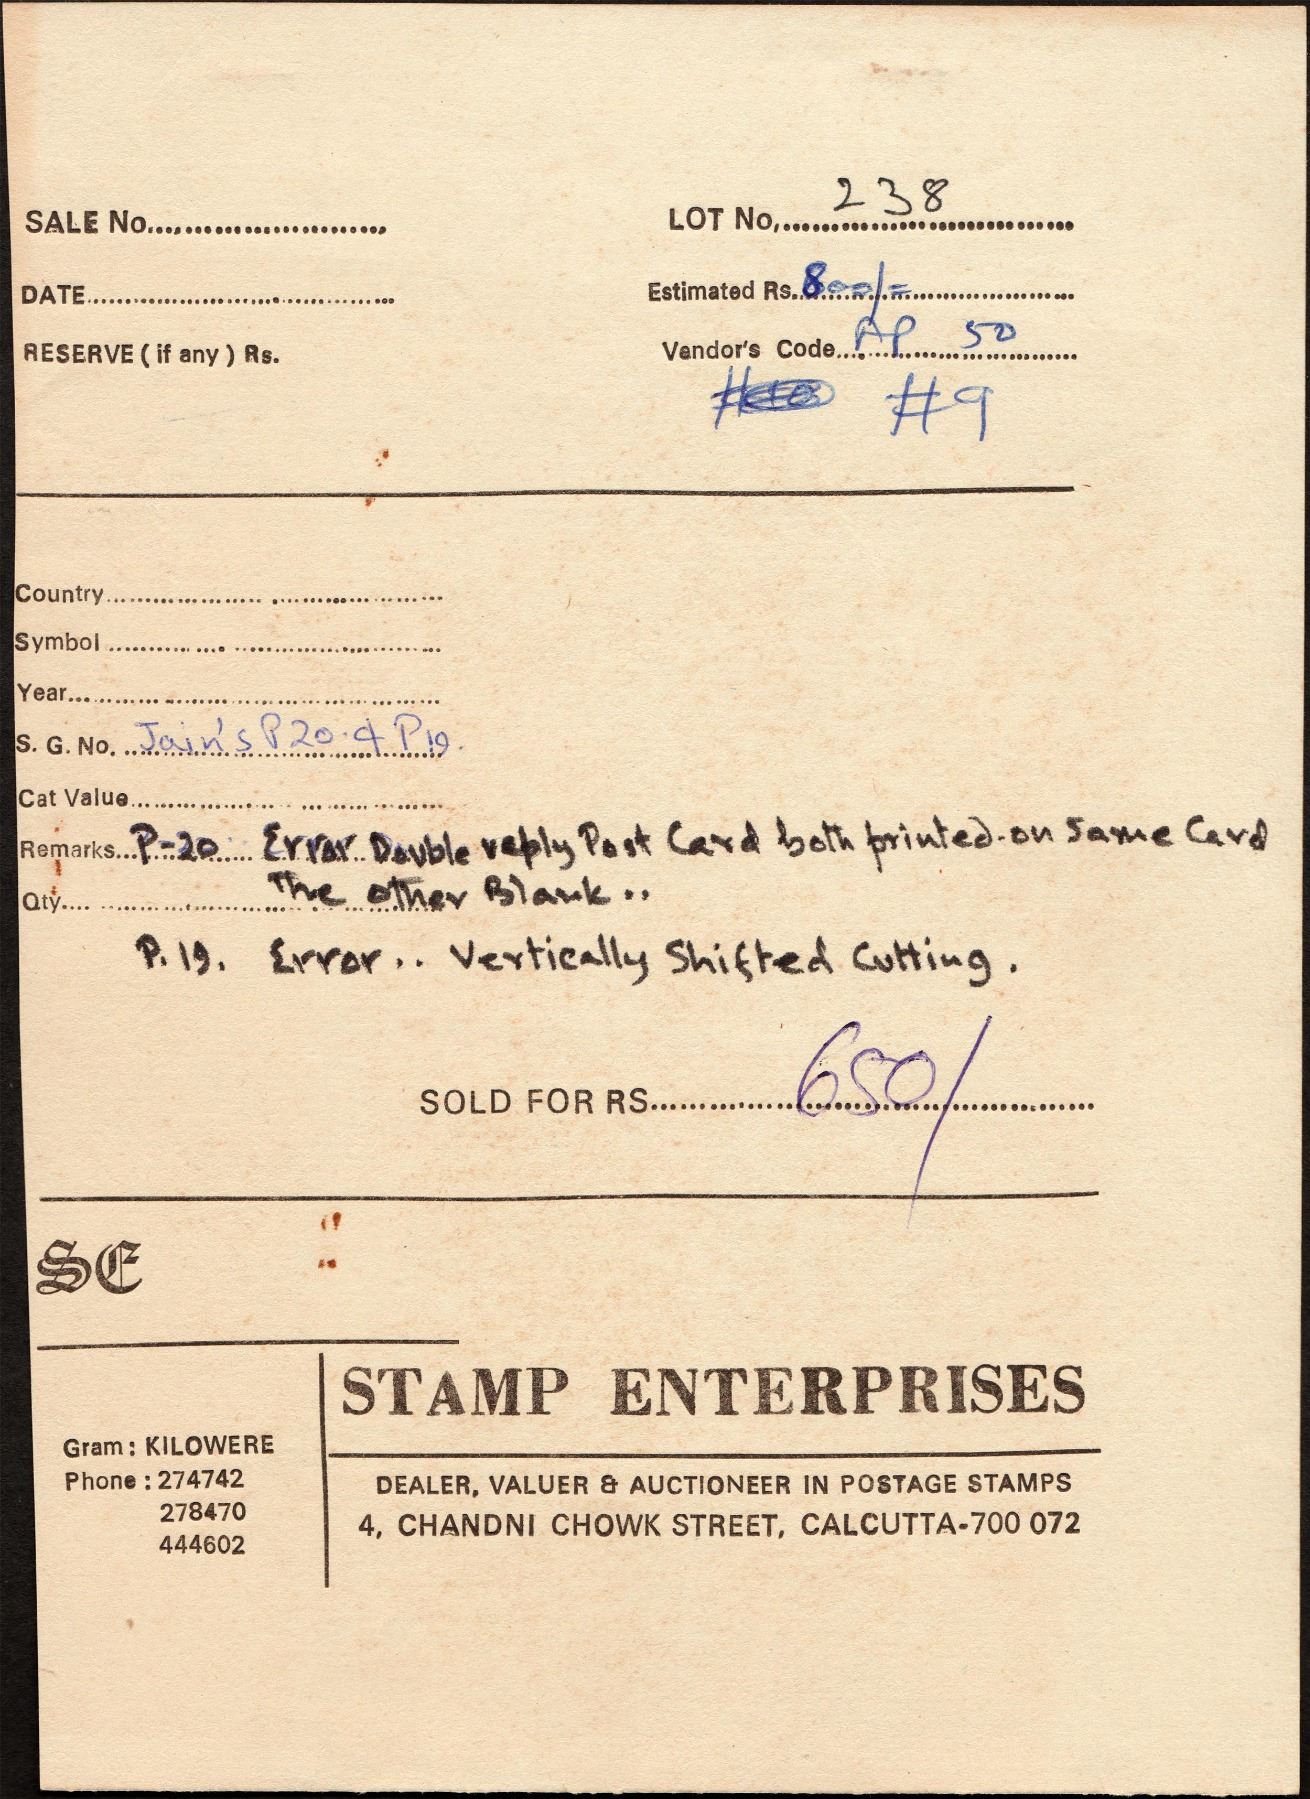 238
SALE No........................ LOT No,..............................
DATE.................................... Estimated Rs. 800/=
RESERVE ( if any ) Rs. Vendor's Code.... AP 50
#9
Country....................................
Symbol ....................................
Year........................................
S. G. No. ..Jain's P20 & P19.
Cat Value...................................
Remarks...P-20 Error Double reply Post Card both printed on Same Card
Qty.... The other Blank..
P. 19. Error.. Vertically Shifted Cutting.
SOLD FOR RS........650/
SE
STAMP ENTERPRISES
Gram : KILOWERE
Phone : 274742
278470
444602
DEALER, VALUER & AUCTIONEER IN POSTAGE STAMPS
4, CHANDNI CHOWK STREET, CALCUTTA-700 072